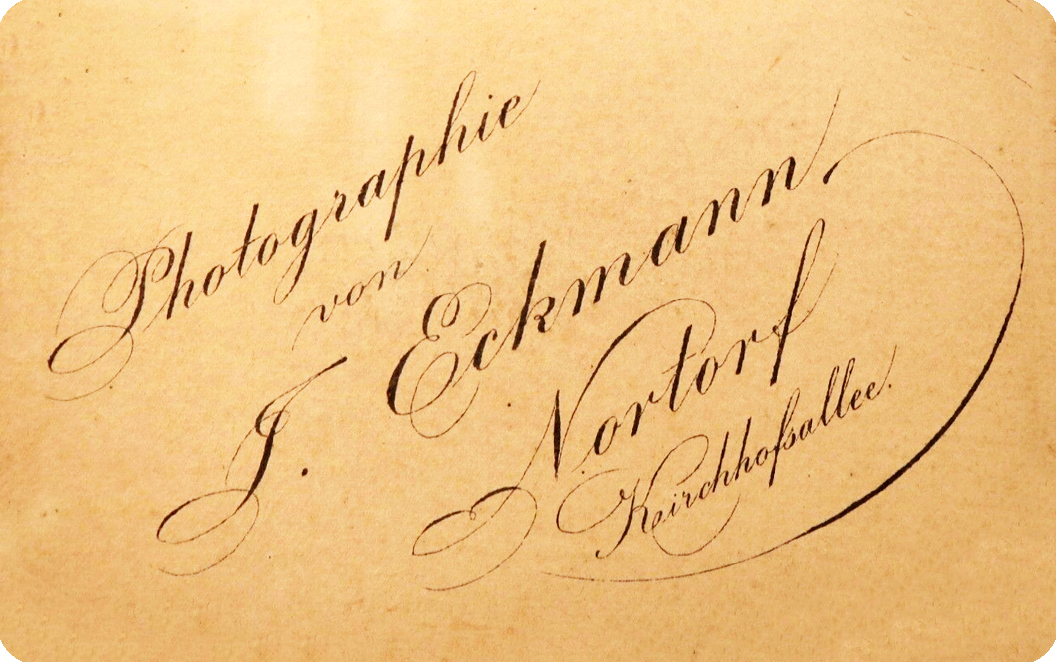 Photographie
von
J. Eckmann
Nortorf
Kirchhofsallee.